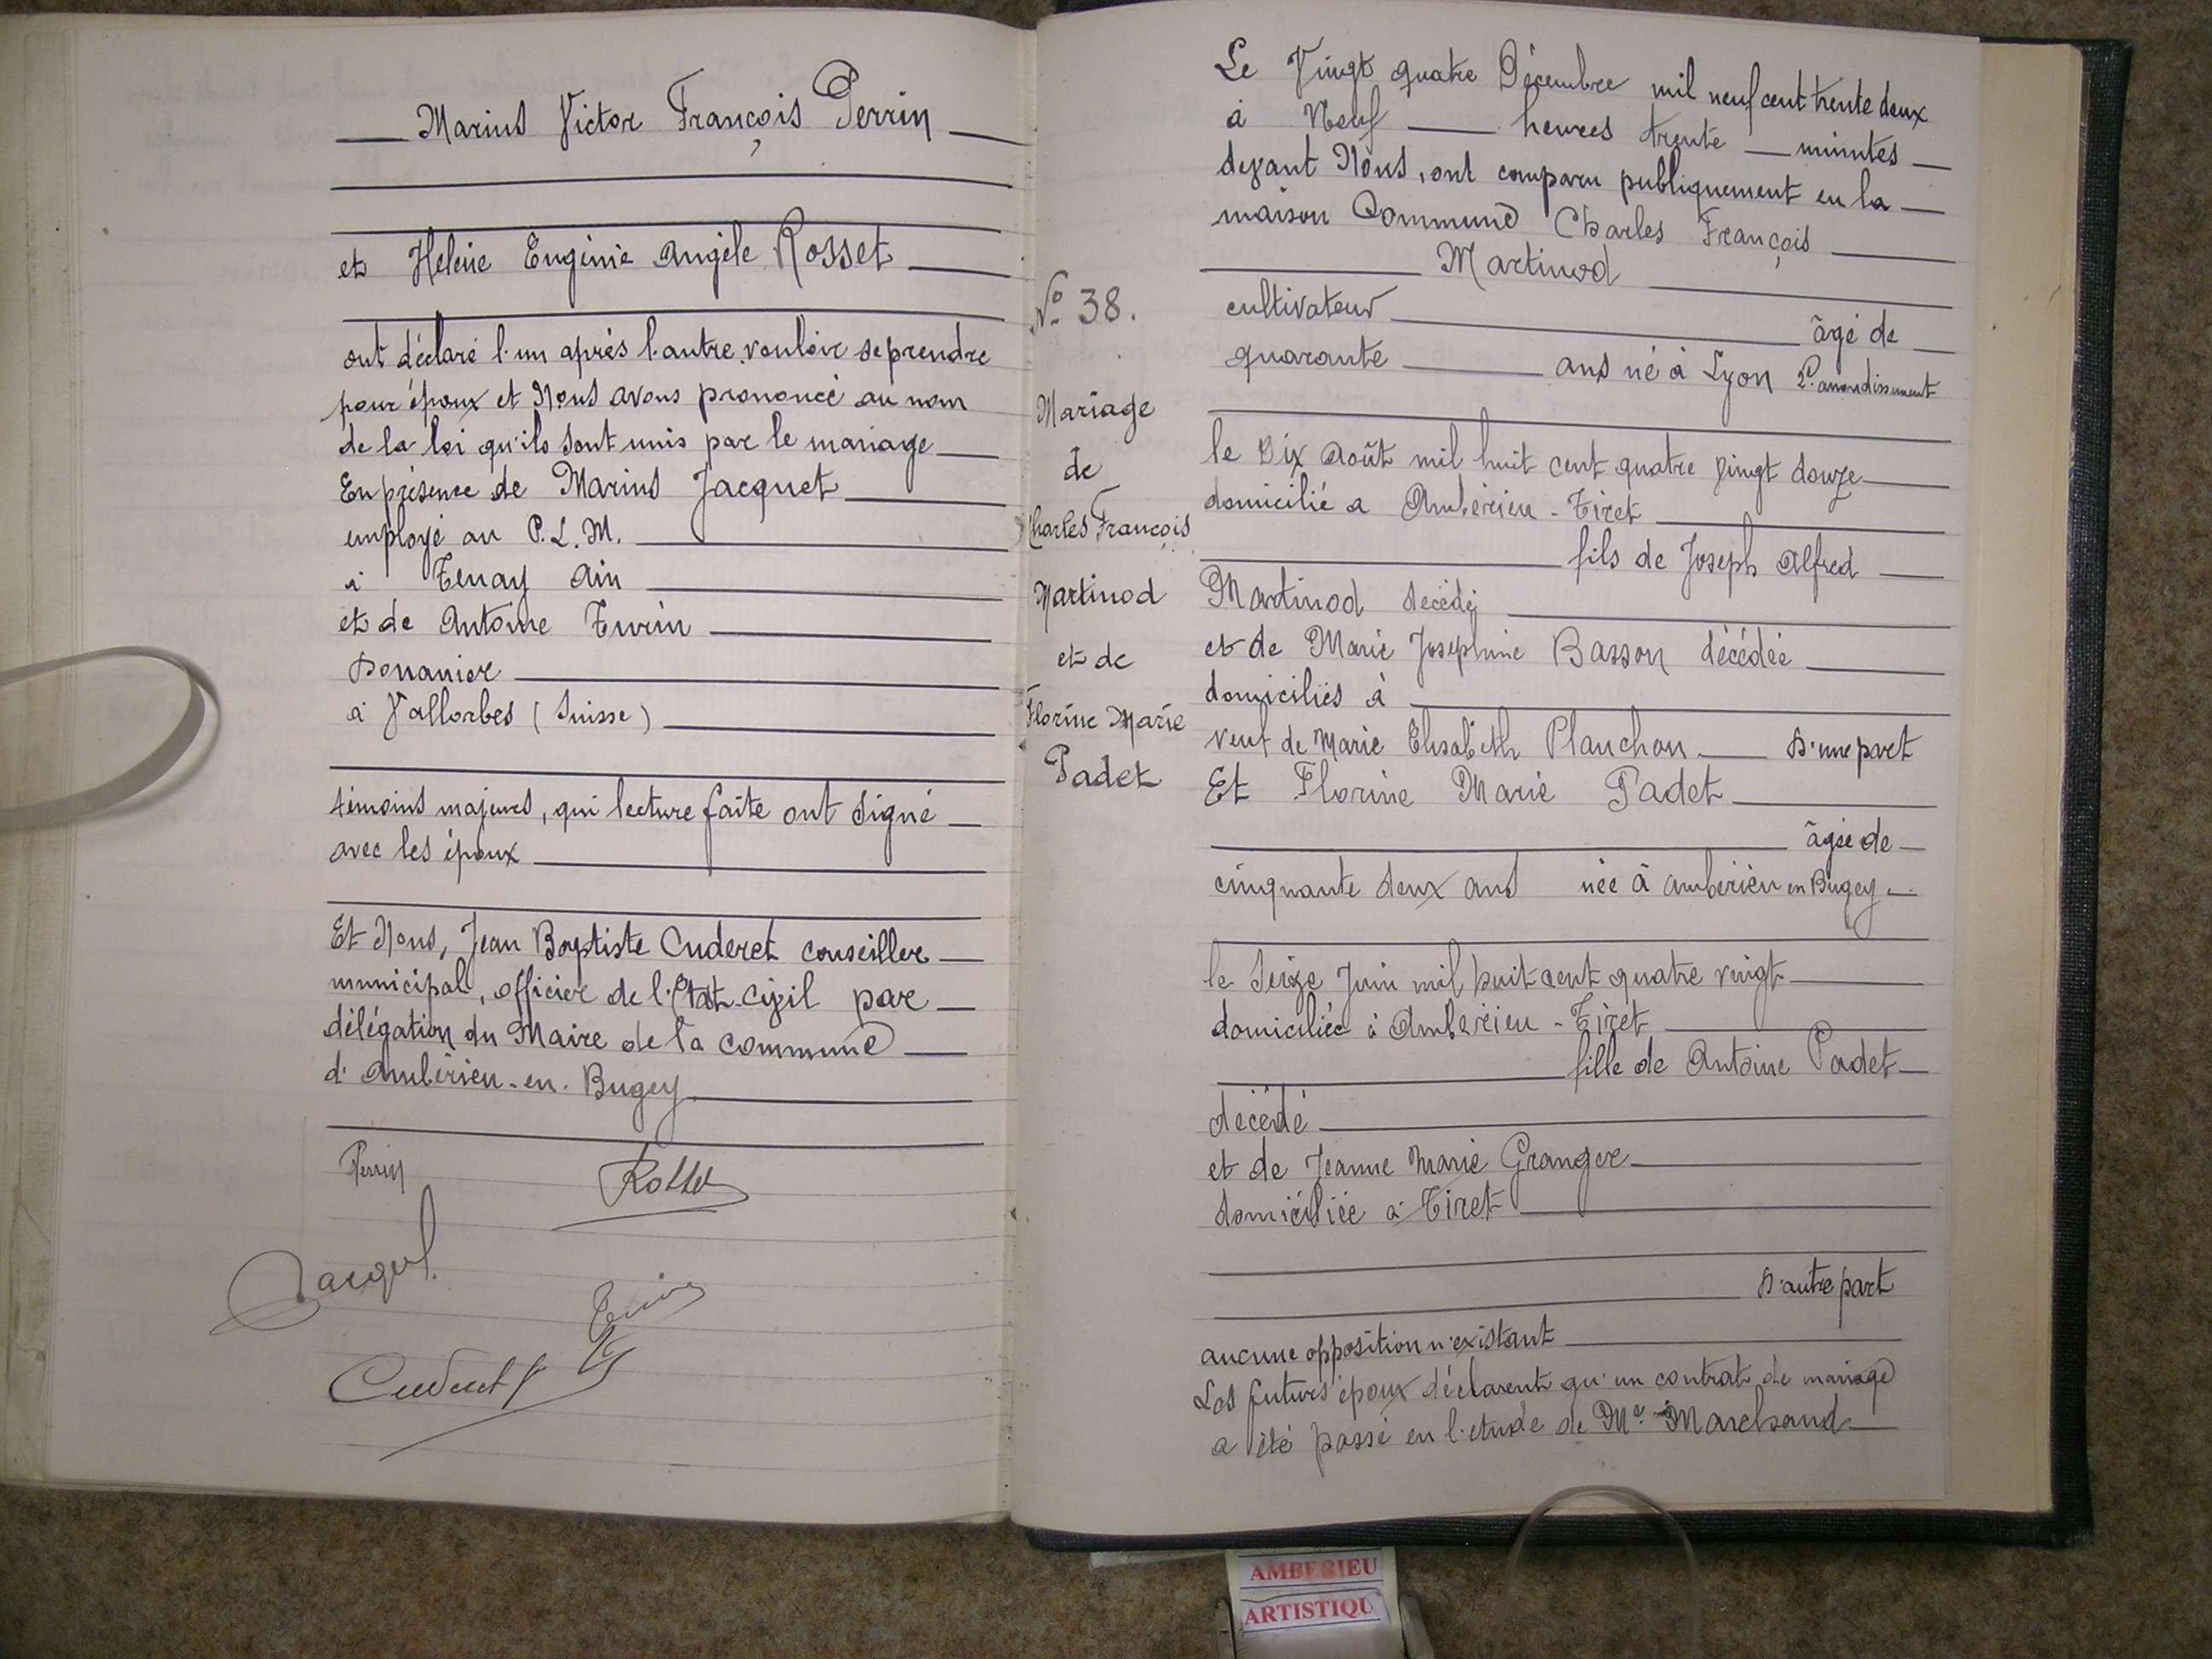 Marius Victor François Perrin
et Hélène Eugénie Angèle Rosset
ont déclaré l'un après l'autre vouloir se prendre
pour époux et Nous avons prononcé au nom
de la loi qu'ils sont unis par le mariage
En présence de Marius Jacquet
employé au P.L.M.
à Tenay Ain
et de Antoine Turin
Douanier
à Vallorbes (Suisse)
témoins majeurs, qui lecture faite ont signé
avec les époux
Et Nous, Jean Baptiste Cuderet conseiller
municipal, officier de l'Etat-Civil par
délégation du Maire de la commune
d'Ambérieu-en-Bugey
Perrin Rosset
Jacquet
Turin
Cuderet
No 38.
Mariage
de
Charles François
Martinod
et de
Florine Marie
Padet
Le Vingt quatre Décembre mil neuf cent trente deux
à Neuf heures trente minutes
devant Nous, ont comparu publiquement en la
maison Commune Charles François
Martinod
cultivateur âgé de
quarante ans né à Lyon 2e arrondissement
le Dix Août mil huit cent quatre vingt douze
domicilié a Ambérieu - Tiret
fils de Joseph Alfred
Martinod décédé
et de Marie Joséphine Basson décédée
domiciliés à
veuf de Marie Elisabeth Planchon D'une part
Et Florine Marie Padet
âgée de
cinquante deux ans née à Ambérieu en Bugey
le Seize Juin mil huit cent quatre vingt
domiciliée à Ambérieu - Tiret
fille de Antoine Padet
décédé
et de Jeanne Marie Granger
domiciliée à Tiret
D'autre part
aucune opposition n'existant
Les futurs époux déclarent qu'un contrat de mariage
a été passé en l'étude de Me Marchand
AMBERIEU
ARTISTIQU